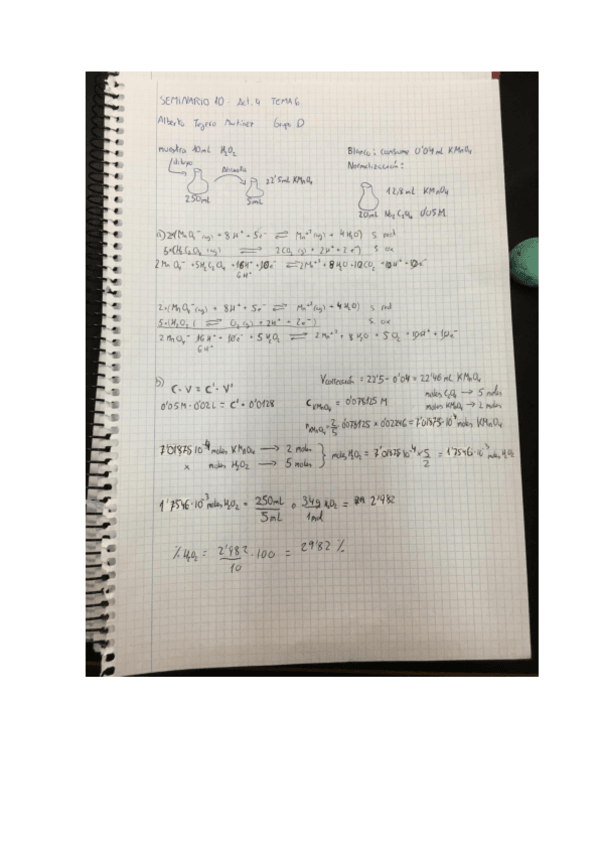 SEMINARIO 10 Act. 4 TEMA 6
Alberto Tejero Martínez Grupo D
muestra 10mL H₂O₂
diluye
Alícuota
22'5mL KMnO₄
250mL
5mL
Blanco: consume 0'04 mL KMnO₄
Normalización:
12'8 mL KMnO₄
20mL Na₂C₂O₄ 0'05M.
a) 2×(MnO₄⁻(aq) + 8H⁺ + 5e⁻ ⇌ Mn⁺²(aq) + 4H₂O) S. red
5×(H₂C₂O₄(aq) ⇌ 2CO₂(g) + 2H⁺ + 2e⁻) S. ox
2MnO₄⁻ + 5H₂C₂O₄ + 16H⁺ + 10e⁻ ⇌ 2Mn⁺² + 8H₂O + 10CO₂ + 10H⁺ + 10e⁻
6H⁺
2×(MnO₄⁻(aq) + 8H⁺ + 5e⁻ ⇌ Mn⁺²(aq) + 4H₂O) S. red
5×(H₂O₂ ( ⇌ O₂(g) + 2H⁺ + 2e⁻) S. ox
2MnO₄⁻ 16H⁺ + 10e⁻ + 5H₂O₂ ⇌ 2Mn⁺² + 8H₂O + 5O₂ + 10H⁺ + 10e⁻
6H⁺
b) C·V = C'·V'
0'05M·0'02L = C'·0'0128
Vcorrección = 22'5 - 0'04 = 22'46 mL KMnO₄
C KMnO₄ = 0'078125 M
moles C₂O₄ → 5 moles
moles KMnO₄ → 2 moles
n MnO₄⁻ = 2/5 · 0'078125 × 0'02246 = 7'01875·10⁻⁴ moles KMnO₄
7'01875·10⁻⁴ moles KMnO₄ → 2 moles
x moles H₂O₂ → 5 moles
moles H₂O₂ = 7'01875·10⁻⁴ × 5/2 = 1'7546·10⁻³ moles H₂O₂
1'7546·10⁻³ moles H₂O₂ · 250mL/5mL · 34g H₂O₂/1mol = 2'982
% H₂O₂ = 2'982/10 · 100 = 29'82 %